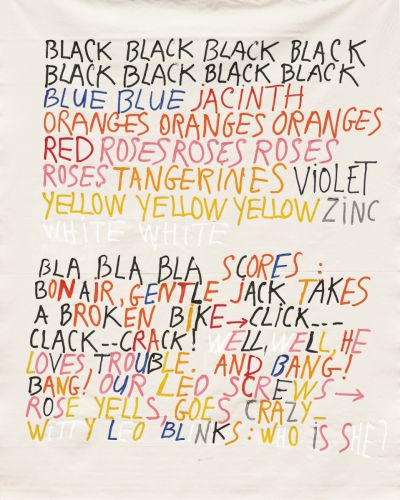 BLACK BLACK BLACK BLACK
BLACK BLACK BLACK BLACK
BLUE BLUE JACINTH
ORANGES ORANGES ORANGES
RED ROSES ROSES ROSES
ROSES TANGERINES VIOLET
YELLOW YELLOW YELLOW ZINC
WHITE WHITE
BLA BLA BLA SCORES :
BONAIR, GENTLE JACK TAKES
A BROKEN BIKE→CLICK---
CLACK--CRACK! WELL, WELL, HE
LOVES TROUBLE. AND BANG!
BANG! OUR LEO SCREWS →
ROSE YELLS, GOES CRAZY_
WETTY LEO BLINKS: WHO IS SHE?